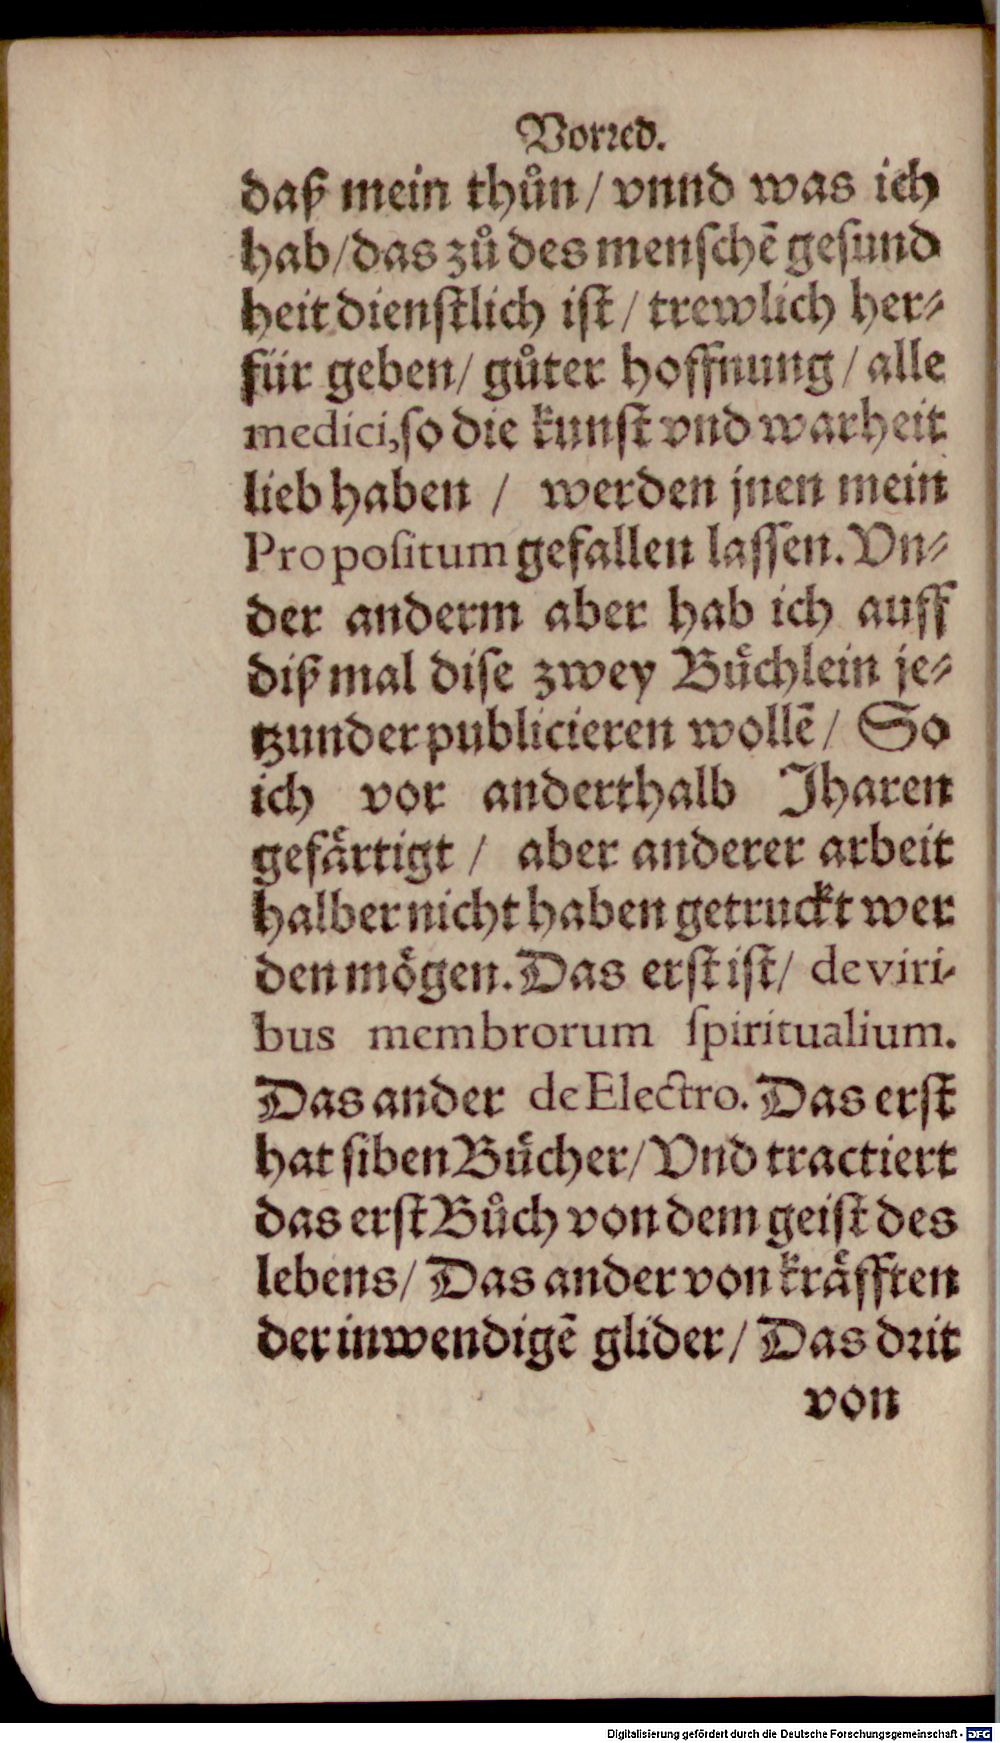 Vorꝛed.
daß mein thůn / vnnd was ich
hab / das zů des menschẽ gesund
heit dienstlich ist / trewlich her⸗
für geben / gůter hoffnung / alle
medici, so die kunst vnd warheit
lieb haben / werden jnen mein
Propositum gefallen lassen. Vn⸗
der anderm aber hab ich auff
diß mal dise zwey Bůchlein je⸗
tzunder publicieren wollẽ / So
ich vor anderthalb Jharen
gefaͤrtigt / aber anderer arbeit
halber nicht haben getruckt wer
den moͤgen. Das erst ist / de viri-
bus membrorum spiritualium.
Das ander de Electro. Das erst
hat siben Buͤcher / Vnd tractiert
das erst Bůch von dem geist des
lebens / Das ander von kraͤfften
der inwendigẽ glider / Das dꝛit
von
Digitalisierung gefördert durch die Deutsche Forschungsgemeinschaft - DFG